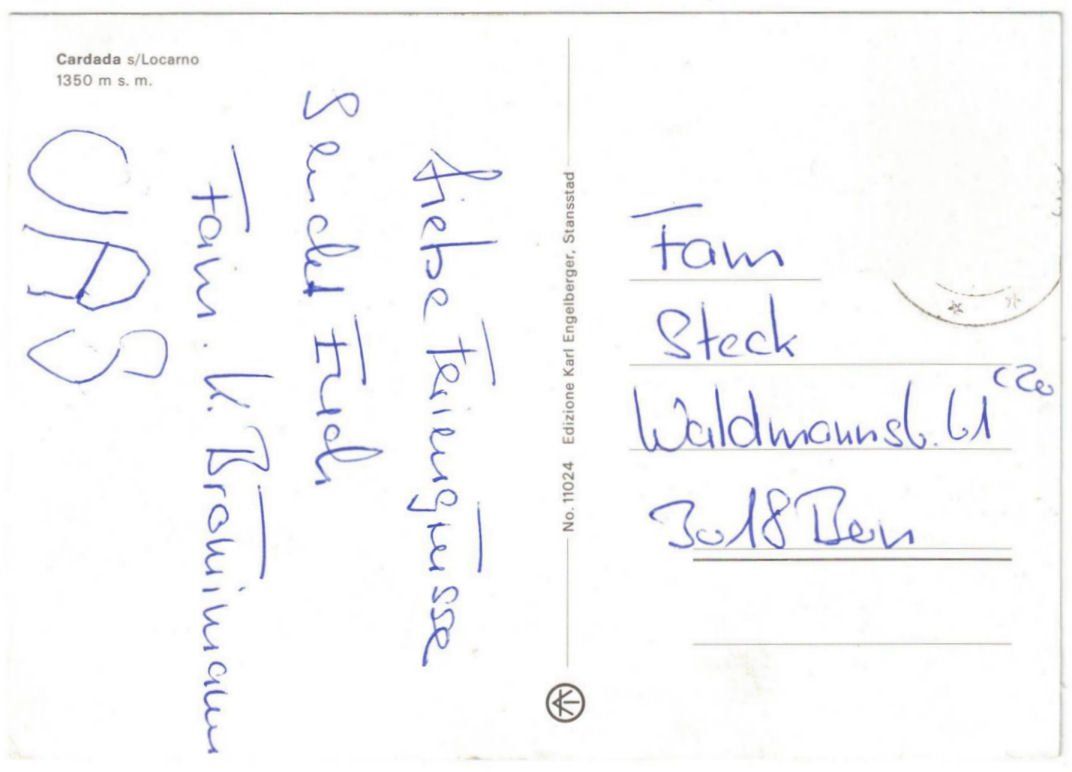 Cardada s/Locarno
1350 m s. m.
Liebe Feriengrüsse
Sendet Euch
Fam. K. Brönimann
URS
No. 11024 Edizione Karl Engelberger, Stansstad
Fam
Steck
Waldmannst. 61
3018 Bern